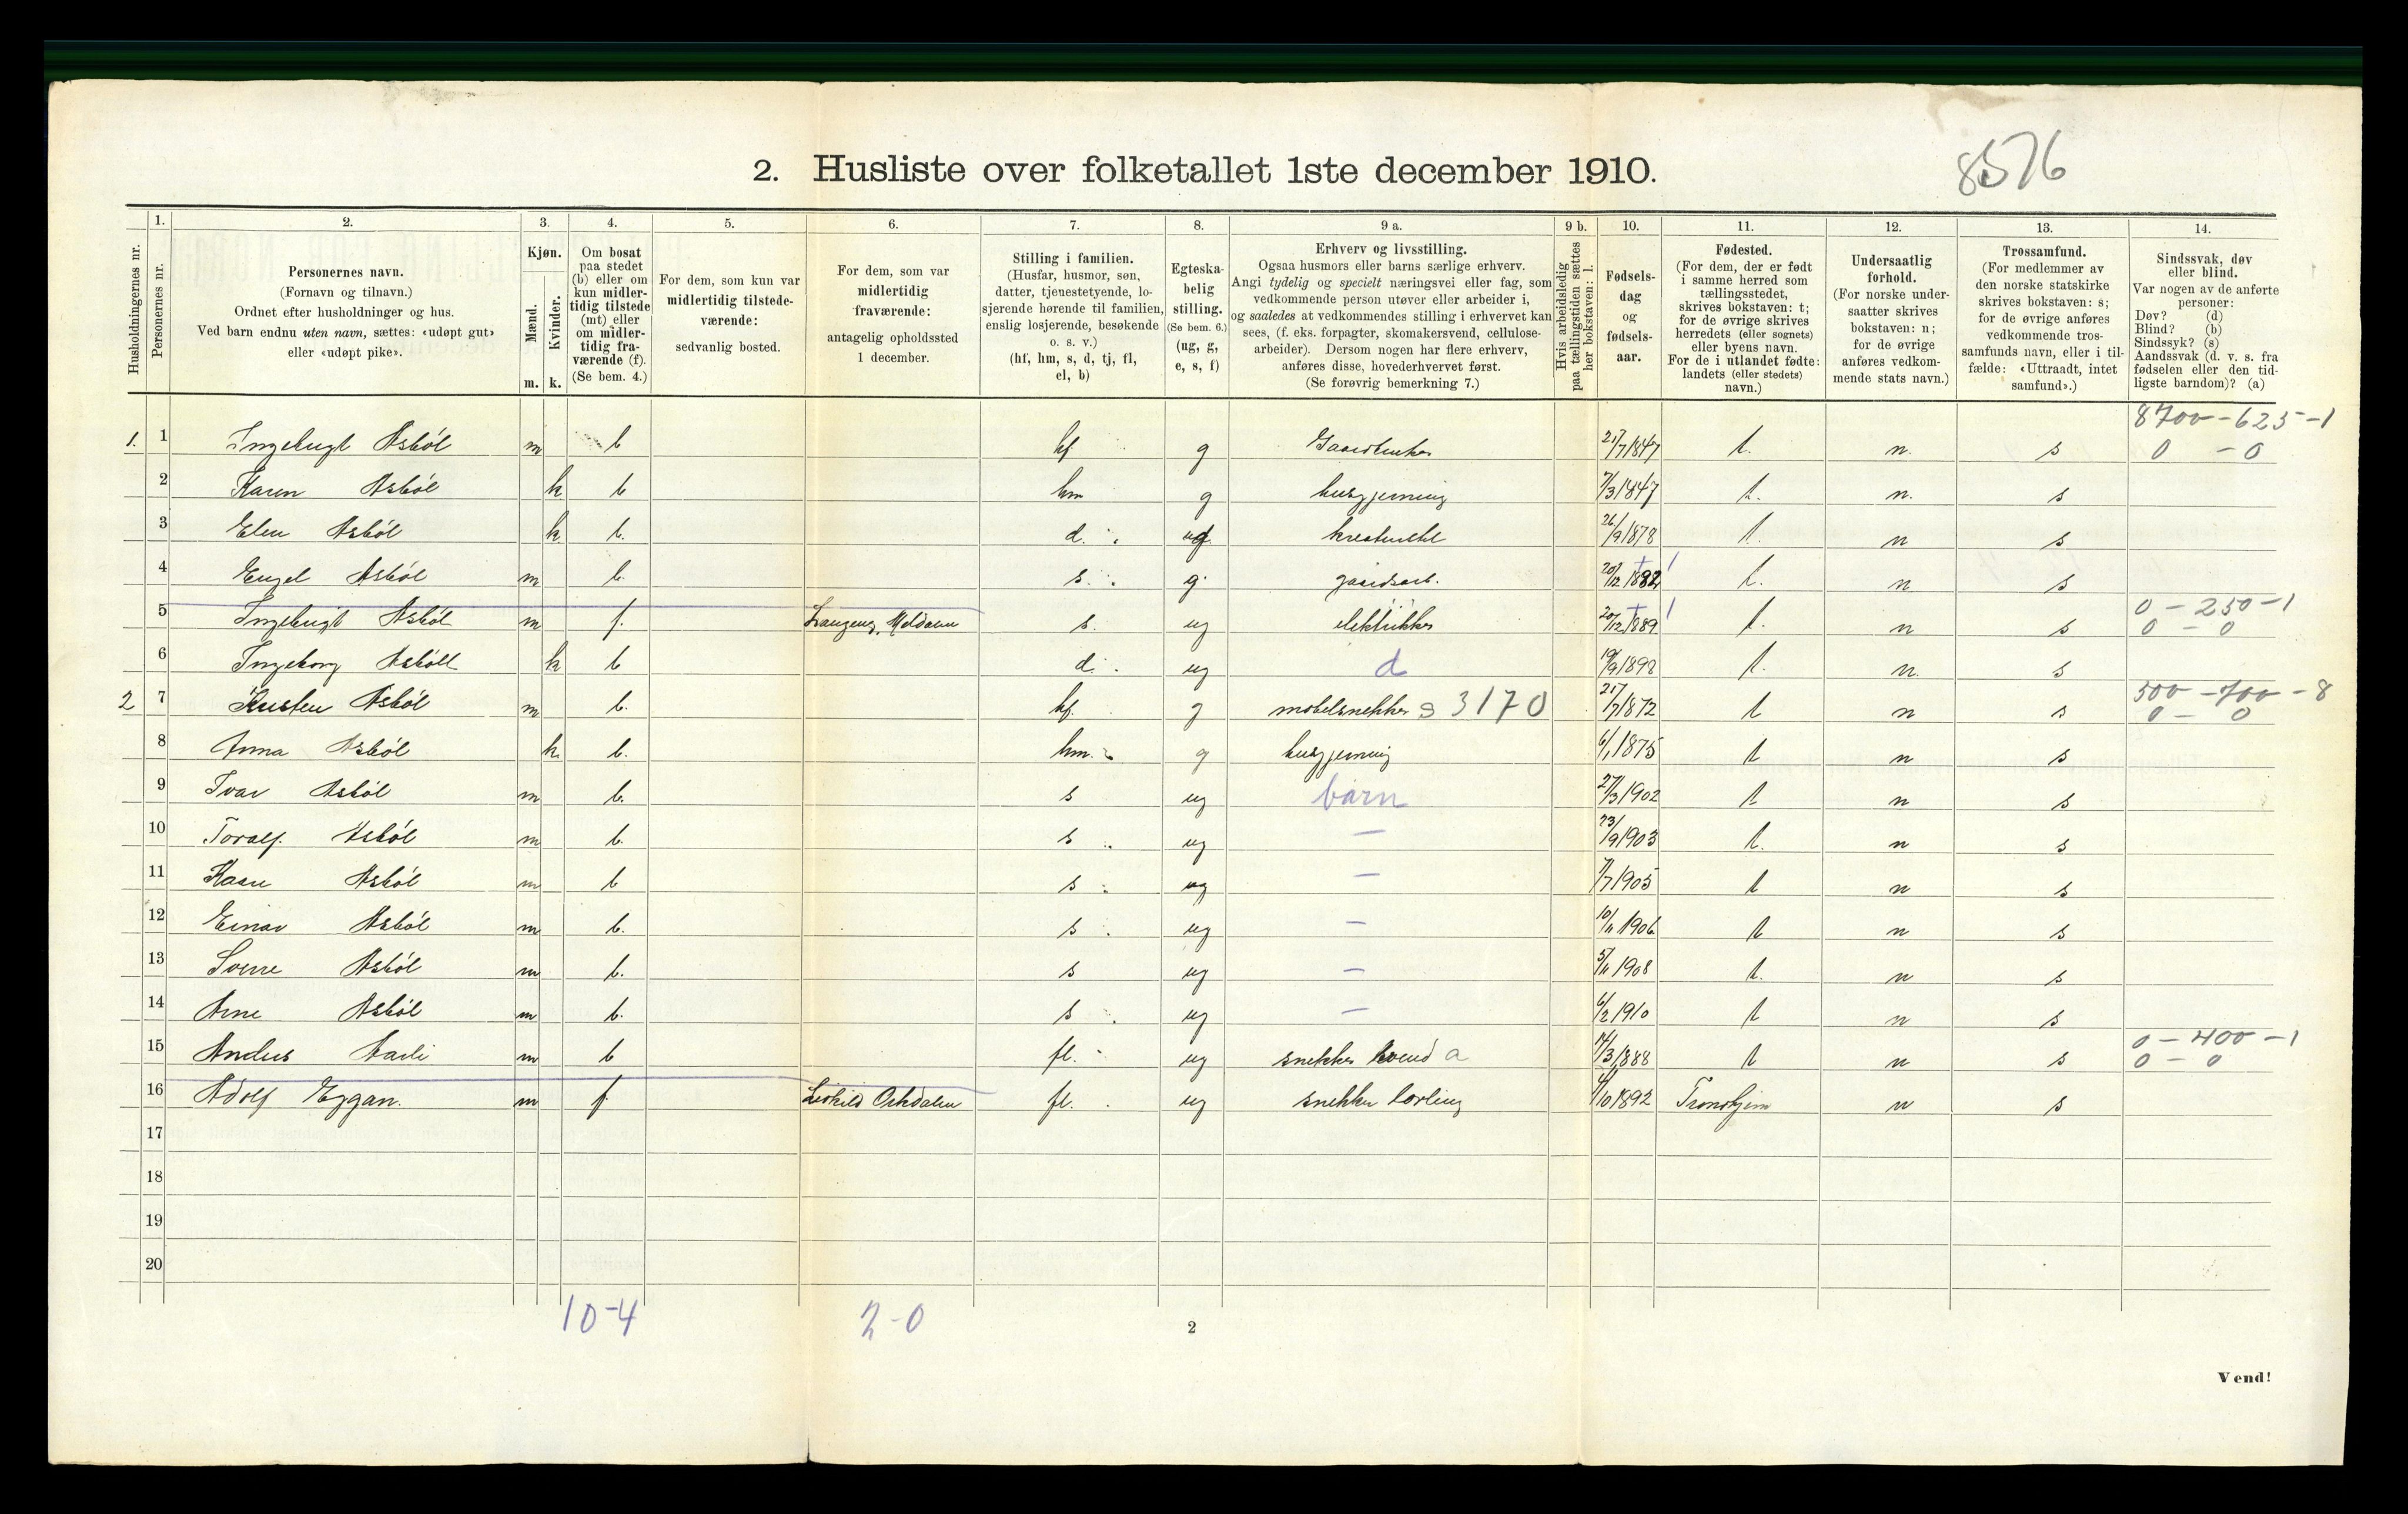 2. Husliste over folketallet 1ste december 1910.
8576
Husholdningernes nr.
1. Personernes nr.
2. Personernes navn.
(Fornavn og tilnavn.)
Ordnet efter husholdninger og hus.
Ved barn endnu uten navn, sættes: «udøpt gut»
eller «udøpt pike».
3. Kjøn.
Mænd. m.
Kvinder. k.
4. Om bosat
paa stedet
(b) eller om
kun midler-
tidig tilstede
(mt) eller
om midler-
tidig fra-
værende (f).
(Se bem. 4.)
5. For dem, som kun var
midlertidig tilstede-
værende:
sedvanlig bosted.
6. For dem, som var
midlertidig
fraværende:
antagelig opholdssted
1 december.
7. Stilling i familien.
(Husfar, husmor, søn,
datter, tjenestetyende, lo-
sjerende hørende til familien,
enslig losjerende, besøkende
o. s. v.)
(hf, hm, s, d, tj, fl,
el, b)
8. Egteska-
belig
stilling.
(Se bem. 6.)
(ug, g,
e, s, f)
9 a. Erhverv og livsstilling.
Ogsaa husmors eller barns særlige erhverv.
Angi tydelig og specielt næringsvei eller fag, som
vedkommende person utøver eller arbeider i,
og saaledes at vedkommendes stilling i erhvervet kan
sees, (f. eks. forpagter, skomakersvend, cellulose-
arbeider). Dersom nogen har flere erhverv,
anføres disse, hovederhvervet først.
(Se forøvrig bemerkning 7.)
9 b. Hvis arbeidsledig
paa tællingstiden sættes
her bokstaven: l.
10. Fødsels-
dag
og
fødsels-
aar.
11. Fødested.
(For dem, der er født
i samme herred som
tællingsstedet,
skrives bokstaven: t;
for de øvrige skrives
herredets (eller sognets)
eller byens navn.
For de i utlandet fødte:
landets (eller stedets)
navn.)
12. Undersaatlig
forhold.
(For norske under-
saatter skrives
bokstaven: n;
for de øvrige
anføres vedkom-
mende stats navn.)
13. Trossamfund.
(For medlemmer av
den norske statskirke
skrives bokstaven: s;
for de øvrige anføres
vedkommende tros-
samfunds navn, eller i til-
fælde: «Uttraadt, intet
samfund».)
14. Sindssvak, døv
eller blind.
Var nogen av de anførte
personer:
Døv? (d)
Blind? (b)
Sindssyk? (s)
Aandssvak (d. v. s. fra
fødselen eller den tid-
ligste barndom)? (a)
8700-625-1
1. 1 Ingebrigt Asböl m b hf. g Gaardbruker 21/7 1847 t. n. s 0 - 0
2 Karen Asböl k b hm g husgjerning 7/3 1847 t. n. s
3 Elen Asböl k b. d. ug kreaturstel 26/9 1878 t. n s
4 Engel Asböl m b. s. g. gaardsarb. 20/12 1882 t. n s
0 - 250 - 1
5 Ingebrigt Asböl m f. Meldalen s. ug elektrikker 20/12 1889 t. n s 0 - 0
6 Ingeborg Asböll k b d. ug d 19/9 1898 t. n. s
500 - 700 - 8
2 7 Kristen Asböl m b. hf. g möbelsnekker s 3170 21/7 1872 t n s 0 - 0
8 Anna Asböl k. b. hm. g husgjerning 6/1 1875 t n s
9 Ivar Asböl m b. s ug barn 27/3 1902 t n s
10 Toralf. Asböl m b. s ug — 23/9 1903 t. n s
11 Kaare Asböl m b s ug — 7/7 1905 t n s
12 Einar Asböl m b. s ug — 10/11 1906 t n s
13 Sverre Asböl m b. s ug — 5/11 1908 t. n s
14 Arne Asböl m b. s ug — 6/2 1910 t n s
0 - 400 - 1
15 Anders Aarli m b fl. ug snekker svend a 14/3 1888 t n s 0 - 0
16 Adolf Eggan. m f. Orkdalen fl. ug snekker lærling 4/10 1892 Trondhjem n s
17
18
19
20
10-4 2-0
2
Vend!